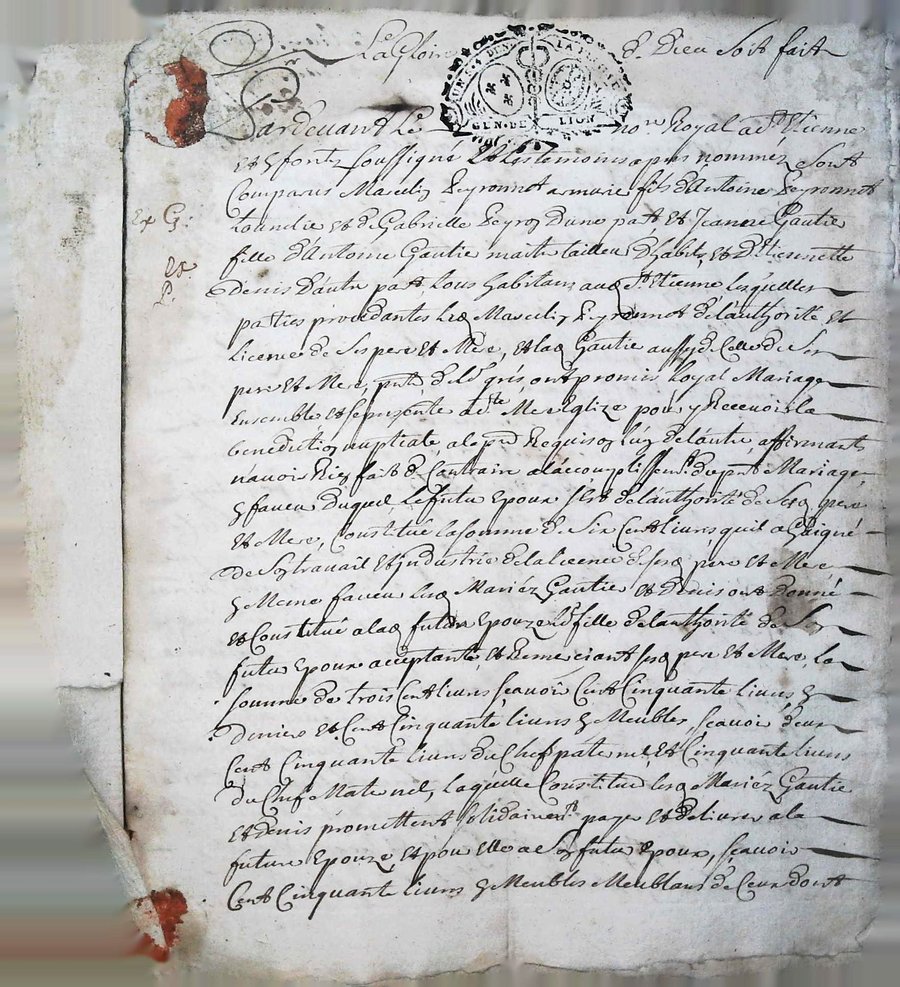 La Gloire de Dieu Soit fait
GEN. DE LION
Pardevant Le no.re Royal a S.t Etienne
et Soussigné Et Les temoins apres nommés Sont
Comparus Marcelin Peyronnet armurie fils d'Antoine Peyronnet
et de Gabrielle Peyron Dune part Et Jeanne Gautie
fille d'Antoine Gautie maitre tailleu D'habits, et D'Etiennette
Denis D'autre part tous habitans aud St Etienne lesquelles
parties procedantes Led Marcelin Peyronnet de l'authorité et
Licence de Ses pere Et Mere, et lad Gautie aussy de Celle de Ses
pere Et Mere, de Leur gré, ont promis Loyal Mariage
Ensemble et Se presenter a n.te Mere Eglize pour y Recevoir la
benediction nuptiale, a la p.re Requisition Lun de l'autre, affirmants
n'avoir Rien fait de Contraire a l'accomplissem.t du p.nt Mariage
En faveur duquel, Le futur Epoux S'est de l'authorité de Sesd. pere
et Mere, Constitué La Somme de Six Cent livres quil a Gaigné
de Son travail Et industrie de la licence de Sesd pere et Mere
En Meme faveur Lesd Mariéz Gautie et Denis ont Donné
et Constitué a lad future Epouze Leur fille de l'authorité de Son
futur Epoux acceptante et Remerciant Sesd pere et Mere, la
Somme de trois Cent livres Scavoir Cent Cinquante livres En
deniers et Cent Cinquante livres En Meubles, Scavoir
Cent Cinquante livres du Chef paternel, et Cinquante livres
du Chef Maternel, laquelle Constitution lesd Mariéz Gautie
et Denis promettent Solidairem.t payer et delivrer a la
future Epouze et pour elle a Son futur Epoux, Scavoir
Cent Cinquante livres En Meubles Meublans de Ceux dont